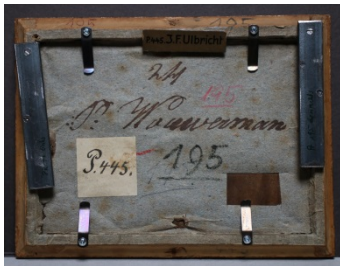 195
P.445 J.F. Ulbricht
24
195
P. Wouwerman
P.445.
195